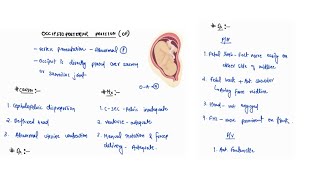 OCCIPITOPOSTERIOR POSITION (OP)
- vertex presentation - Abnormal
- Occiput is directly placed over sacrum
or sacroiliac joint.
# Causes :-
1. Cephalopelvic disproportion
2. Deflexed head
3. Abnormal uterine contraction
# Mx :-
1. C-sec - Pelvic inadequate
2. Ventouse - adequate
3. Manual rotation & forcep
delivery - Adequate.
P/A
1. Fetal limbs - Felt more easily on
either side of midline
2. Fetal back & Ant shoulder
Away from midline
3. Head - not engaged
4. FHS - more prominent on flank
P/V
1. Ant fontanelle